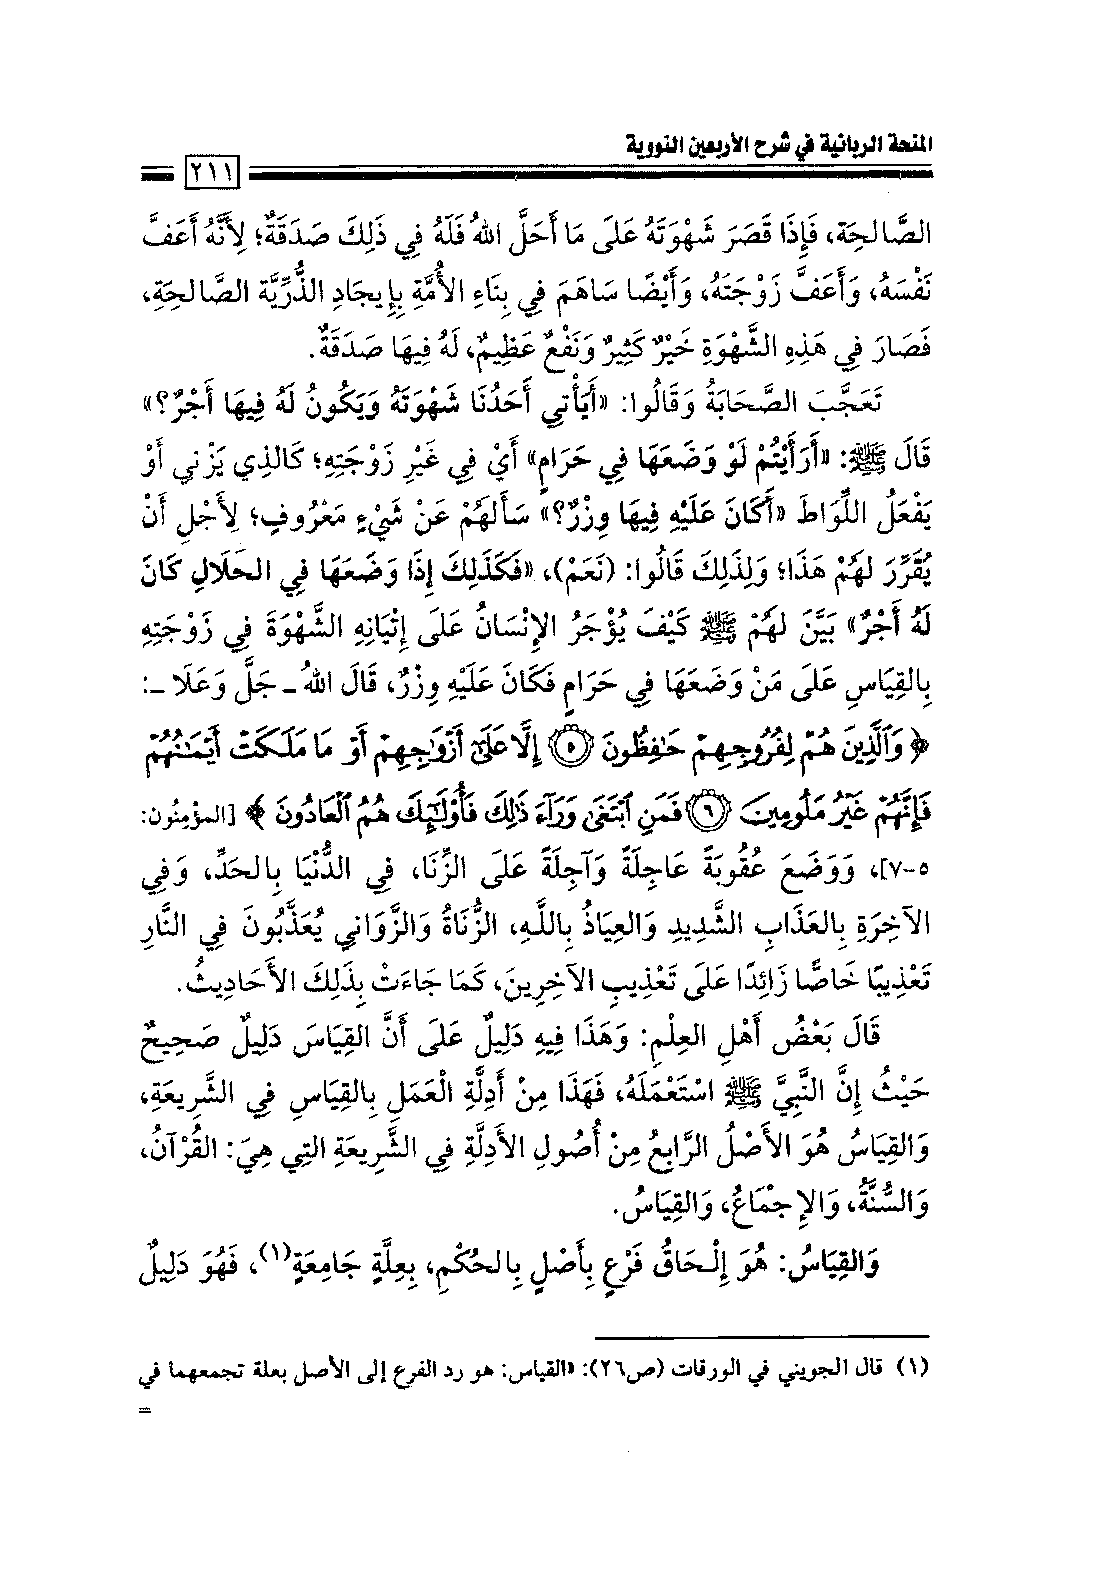 المنحة الربانية في شرح الأربعين النووية
٢١١
الصَّالِحَة، فَإِذَا قَصَرَ شَهْوَتَهُ عَلَى مَا أَحَلَّ اللهُ فَلَهُ فِي ذَلِكَ صَدَقَةٌ؛ لِأَنَّهُ أَعَفَّ
نَفْسَهُ، وَأَعَفَّ زَوْجَتَهُ، وَأَيْضًا سَاهَمَ فِي بِنَاءِ الأُمَّةِ بِإِيجَادِ الذُّرِّيَّة الصَّالِحَةِ،
فَصَارَ فِي هَذِهِ الشَّهْوَةِ خَيْرٌ كَثِيرٌ وَنَفْعٌ عَظِيمٌ، لَهُ فِيهَا صَدَقَةٌ.
تَعَجَّبَ الصَّحَابَةُ وَقَالُوا: «أَيَأْتِي أَحَدُنَا شَهْوَتَهُ وَيَكُونُ لَهُ فِيهَا أَجْرٌ؟»
قَالَ ﷺ: «أَرَأَيْتُمْ لَوْ وَضَعَهَا فِي حَرَامٍ» أَيْ فِي غَيْرِ زَوْجَتِهِ؛ كَالذِي يَزْنِي أَوْ
يَفْعَلُ اللِّوَاطَ «أَكَانَ عَلَيْهِ فِيهَا وِزْرٌ؟» سَأَلهُمْ عَنْ شَيْءٍ مَعْرُوفٍ؛ لِأَجْلِ أَنْ
يُقَرِّرَ لهُمْ هَذَا؛ وَلِذَلِكَ قَالُوا: (نَعَمْ)، «فَكَذَلِكَ إِذَا وَضَعَهَا فِي الحَلَالِ كَانَ
لَهُ أَجْرٌ» بَيَّنَ لهُمْ ﷺ كَيْفَ يُؤْجَرُ الإِنْسَانُ عَلَى إِتْيَانِهِ الشَّهْوَةَ فِي زَوْجَتِهِ
بِالقِيَاسِ عَلَى مَنْ وَضَعَهَا فِي حَرَامٍ فَكَانَ عَلَيْهِ وِزْرٌ، قَالَ اللهُ ـ جَلَّ وَعَلَا ـ:
﴿ وَالَّذِينَ هُمْ لِفُرُوجِهِمْ حَافِظُونَ ۝٥ إِلَّا عَلَىٰ أَزْوَاجِهِمْ أَوْ مَا مَلَكَتْ أَيْمَانُهُمْ
فَإِنَّهُمْ غَيْرُ مَلُومِينَ ۝٦ فَمَنِ ابْتَغَىٰ وَرَاءَ ذَٰلِكَ فَأُولَٰئِكَ هُمُ الْعَادُونَ ﴾ [المؤمِنُون:
٥-٧]، وَوَضَعَ عُقُوبَةً عَاجِلَةً وَآجِلَةً عَلَى الزِّنَا، فِي الدُّنْيَا بِالحَدِّ، وَفِي
الآخِرَةِ بِالعَذَابِ الشَّدِيدِ وَالعِيَاذُ بِاللَّهِ، الزُّنَاةُ وَالزَّوَانِي يُعَذَّبُونَ فِي النَّارِ
تَعْذِيبًا خَاصًّا زَائِدًا عَلَى تَعْذِيبِ الآخِرِينَ، كَمَا جَاءَتْ بِذَلِكَ الأَحَادِيثُ.
قَالَ بَعْضُ أَهْلِ العِلْمِ: وَهَذَا فِيهِ دَلِيلٌ عَلَى أَنَّ القِيَاسَ دَلِيلٌ صَحِيحٌ
حَيْثُ إِنَّ النَّبِيَّ ﷺ اسْتَعْمَلَهُ، فَهَذَا مِنْ أَدِلَّةِ الْعَمَلِ بِالقِيَاسِ فِي الشَّرِيعَةِ،
وَالقِيَاسُ هُوَ الأَصْلُ الرَّابِعُ مِنْ أُصُولِ الأَدِلَّةِ فِي الشَّرِيعَةِ التِي هِيَ: القُرْآنُ،
وَالسُّنَّةُ، وَالإِجْمَاعُ، وَالقِيَاسُ.
وَالقِيَاسُ: هُوَ إِلْحَاقُ فَرْعٍ بِأَصْلٍ بِالحُكْمِ، بِعِلَّةٍ جَامِعَةٍ(١)، فَهُوَ دَلِيلٌ
(١) قال الجويني في الورقات (ص٢٦): «القياس: هو رد الفرع إلى الأصل بعلة تجمعهما في
=